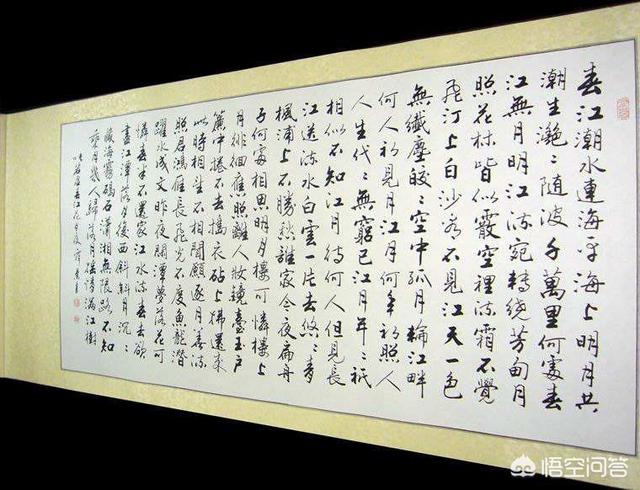 春江潮水連海平海上明月共
潮生灩〻隨波千萬里何處春
江無月明江流宛轉繞芳甸月
照花林皆似霰空裡流霜不覺
飛汀上白沙看不見江天一色
無纖塵皎〻空中孤月輪江畔
何人初見月江月何年初照人
人生代〻無窮已江月年〻祇
相似不知江月待何人但見長
江送流水白雲一片去悠〻青
楓浦上不勝愁誰家今夜扁舟
子何處相思明月樓可憐樓上
月徘徊應照離人妝鏡臺玉戶
簾中捲不去擣衣砧上拂還來
此時相望不相聞願逐月華流
照君鴻雁長飛光不度魚龍潛
躍水成文昨夜閒潭夢落花可
憐春半不還家江水流春去欲
盡江潭落月復西斜斜月沉〻
藏海霧碣石瀟湘無限路不知
乘月幾人歸落月搖情滿江樹
春江花月夜
悟空问答